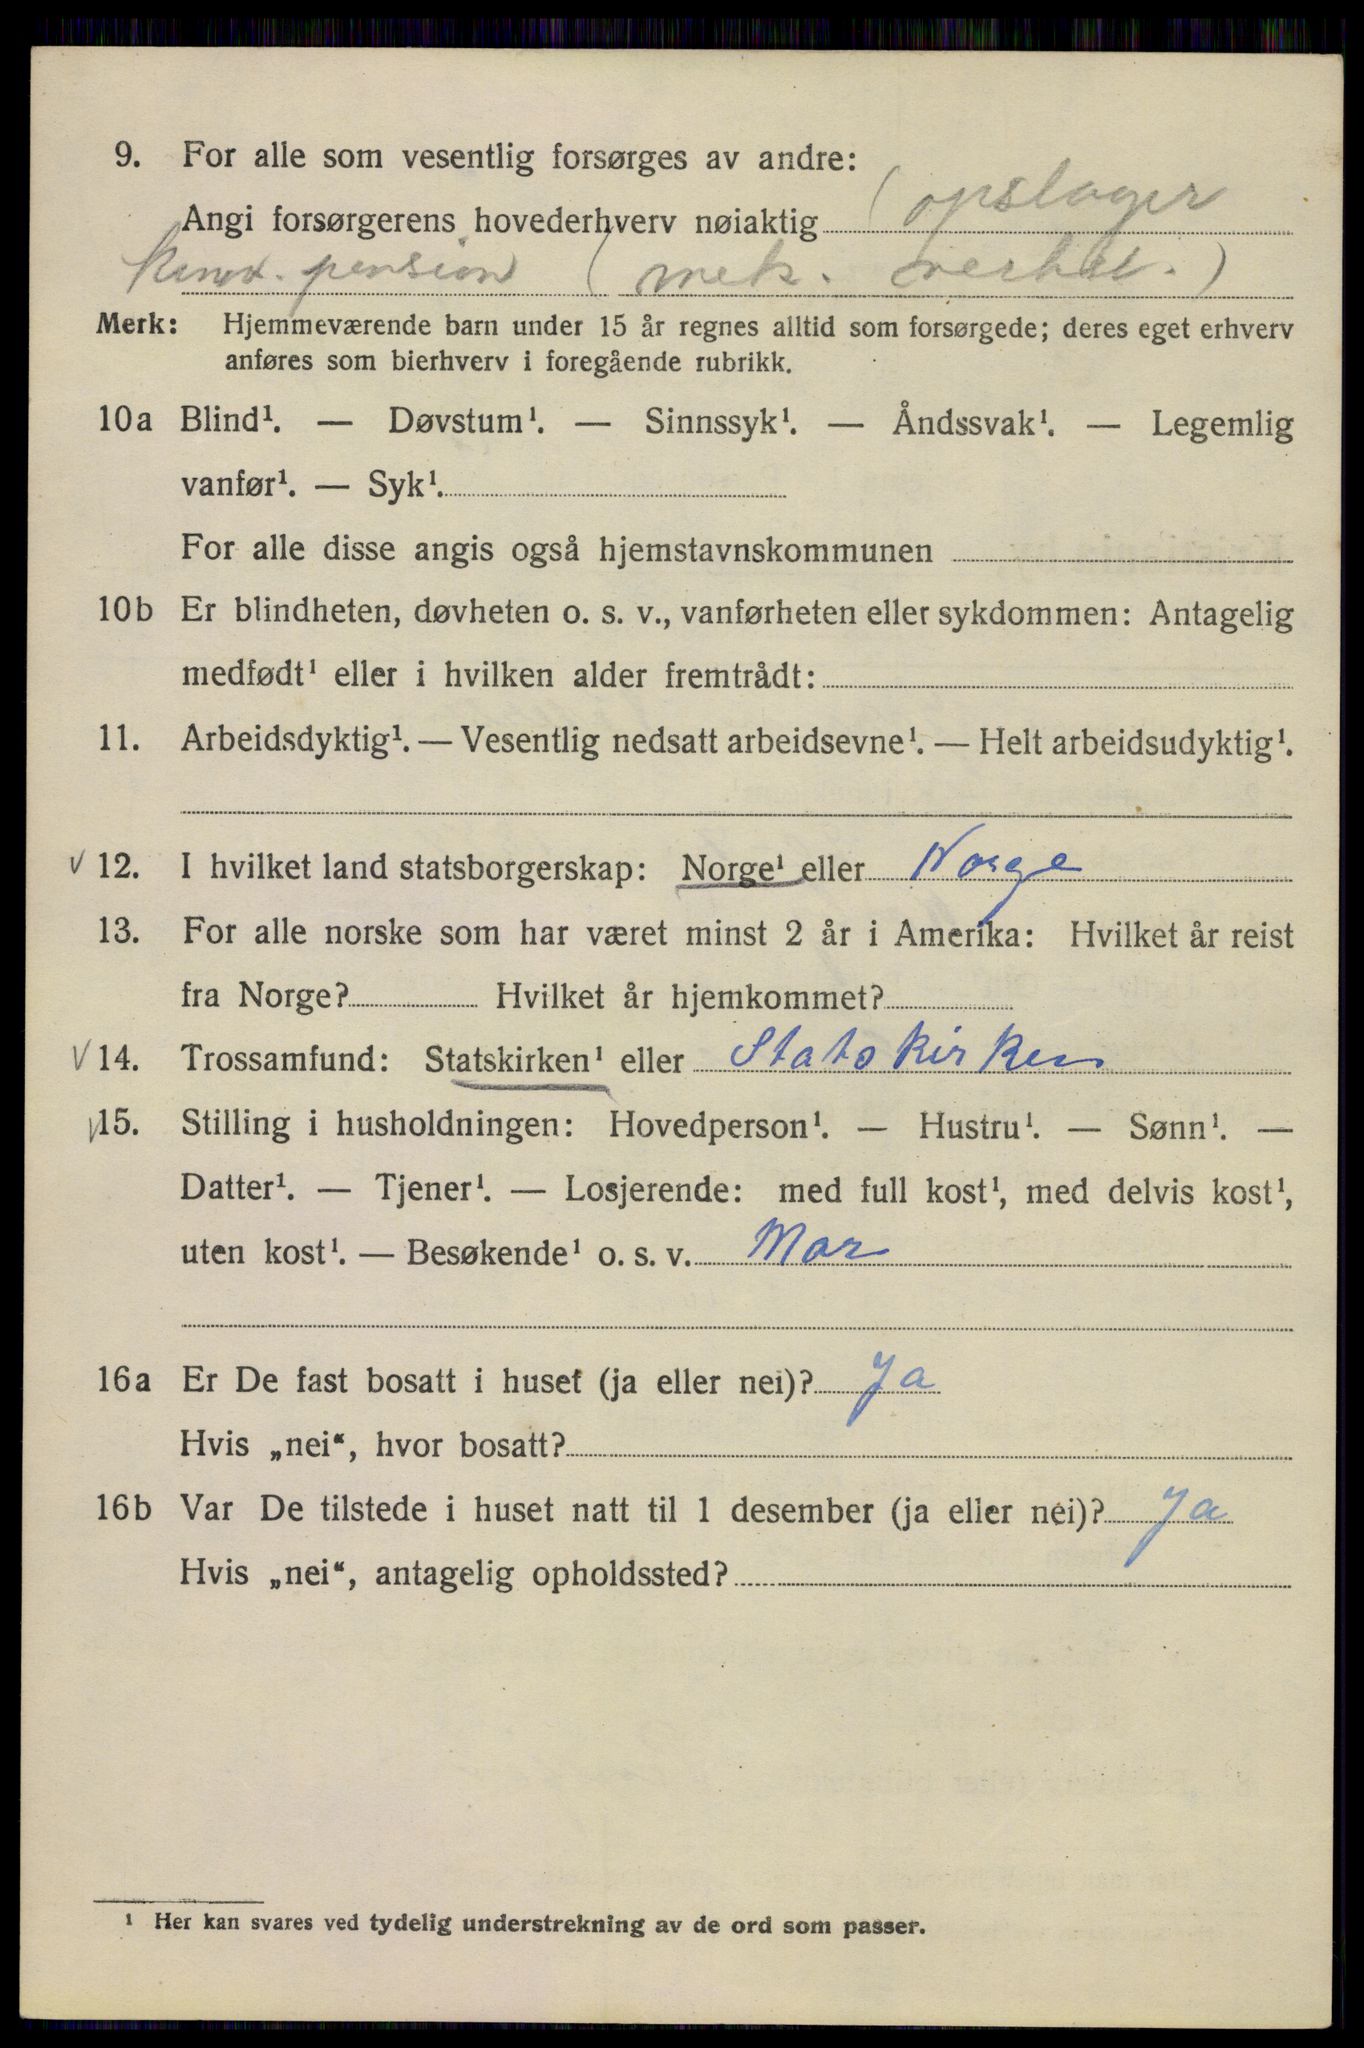 9. For alle som vesentlig forsørges av andre:
Angi forsørgerens hovederhverv nøiaktig (opslager
pension (mek. verkst.)
Merk: Hjemmeværende barn under 15 år regnes alltid som forsørgede; deres eget erhverv
anføres som bierhverv i foregående rubrikk.
10a Blind¹. — Døvstum¹. — Sinnssyk¹. — Åndssvak¹. — Legemlig
vanfør¹. — Syk¹.
For alle disse angis også hjemstavnskommunen
10b Er blindheten, døvheten o. s. v., vanførheten eller sykdommen: Antagelig
medfødt¹ eller i hvilken alder fremtrådt:
11. Arbeidsdyktig¹. — Vesentlig nedsatt arbeidsevne¹. — Helt arbeidsudyktig¹.
V 12. I hvilket land statsborgerskap: Norge¹ eller Norge
13. For alle norske som har været minst 2 år i Amerika: Hvilket år reist
fra Norge? Hvilket år hjemkommet?
V 14. Trossamfund: Statskirken¹ eller Statskirken
V 15. Stilling i husholdningen: Hovedperson¹. — Hustru¹. — Sønn¹. —
Datter¹. — Tjener¹. — Losjerende: med full kost¹, med delvis kost¹,
uten kost¹. — Besøkende¹ o. s. v. Mor
16a Er De fast bosatt i huset (ja eller nei)? Ja
Hvis „nei“, hvor bosatt?
16b Var De tilstede i huset natt til 1 desember (ja eller nei)? Ja
Hvis „nei“, antagelig opholdssted?
¹ Her kan svares ved tydelig understrekning av de ord som passer.